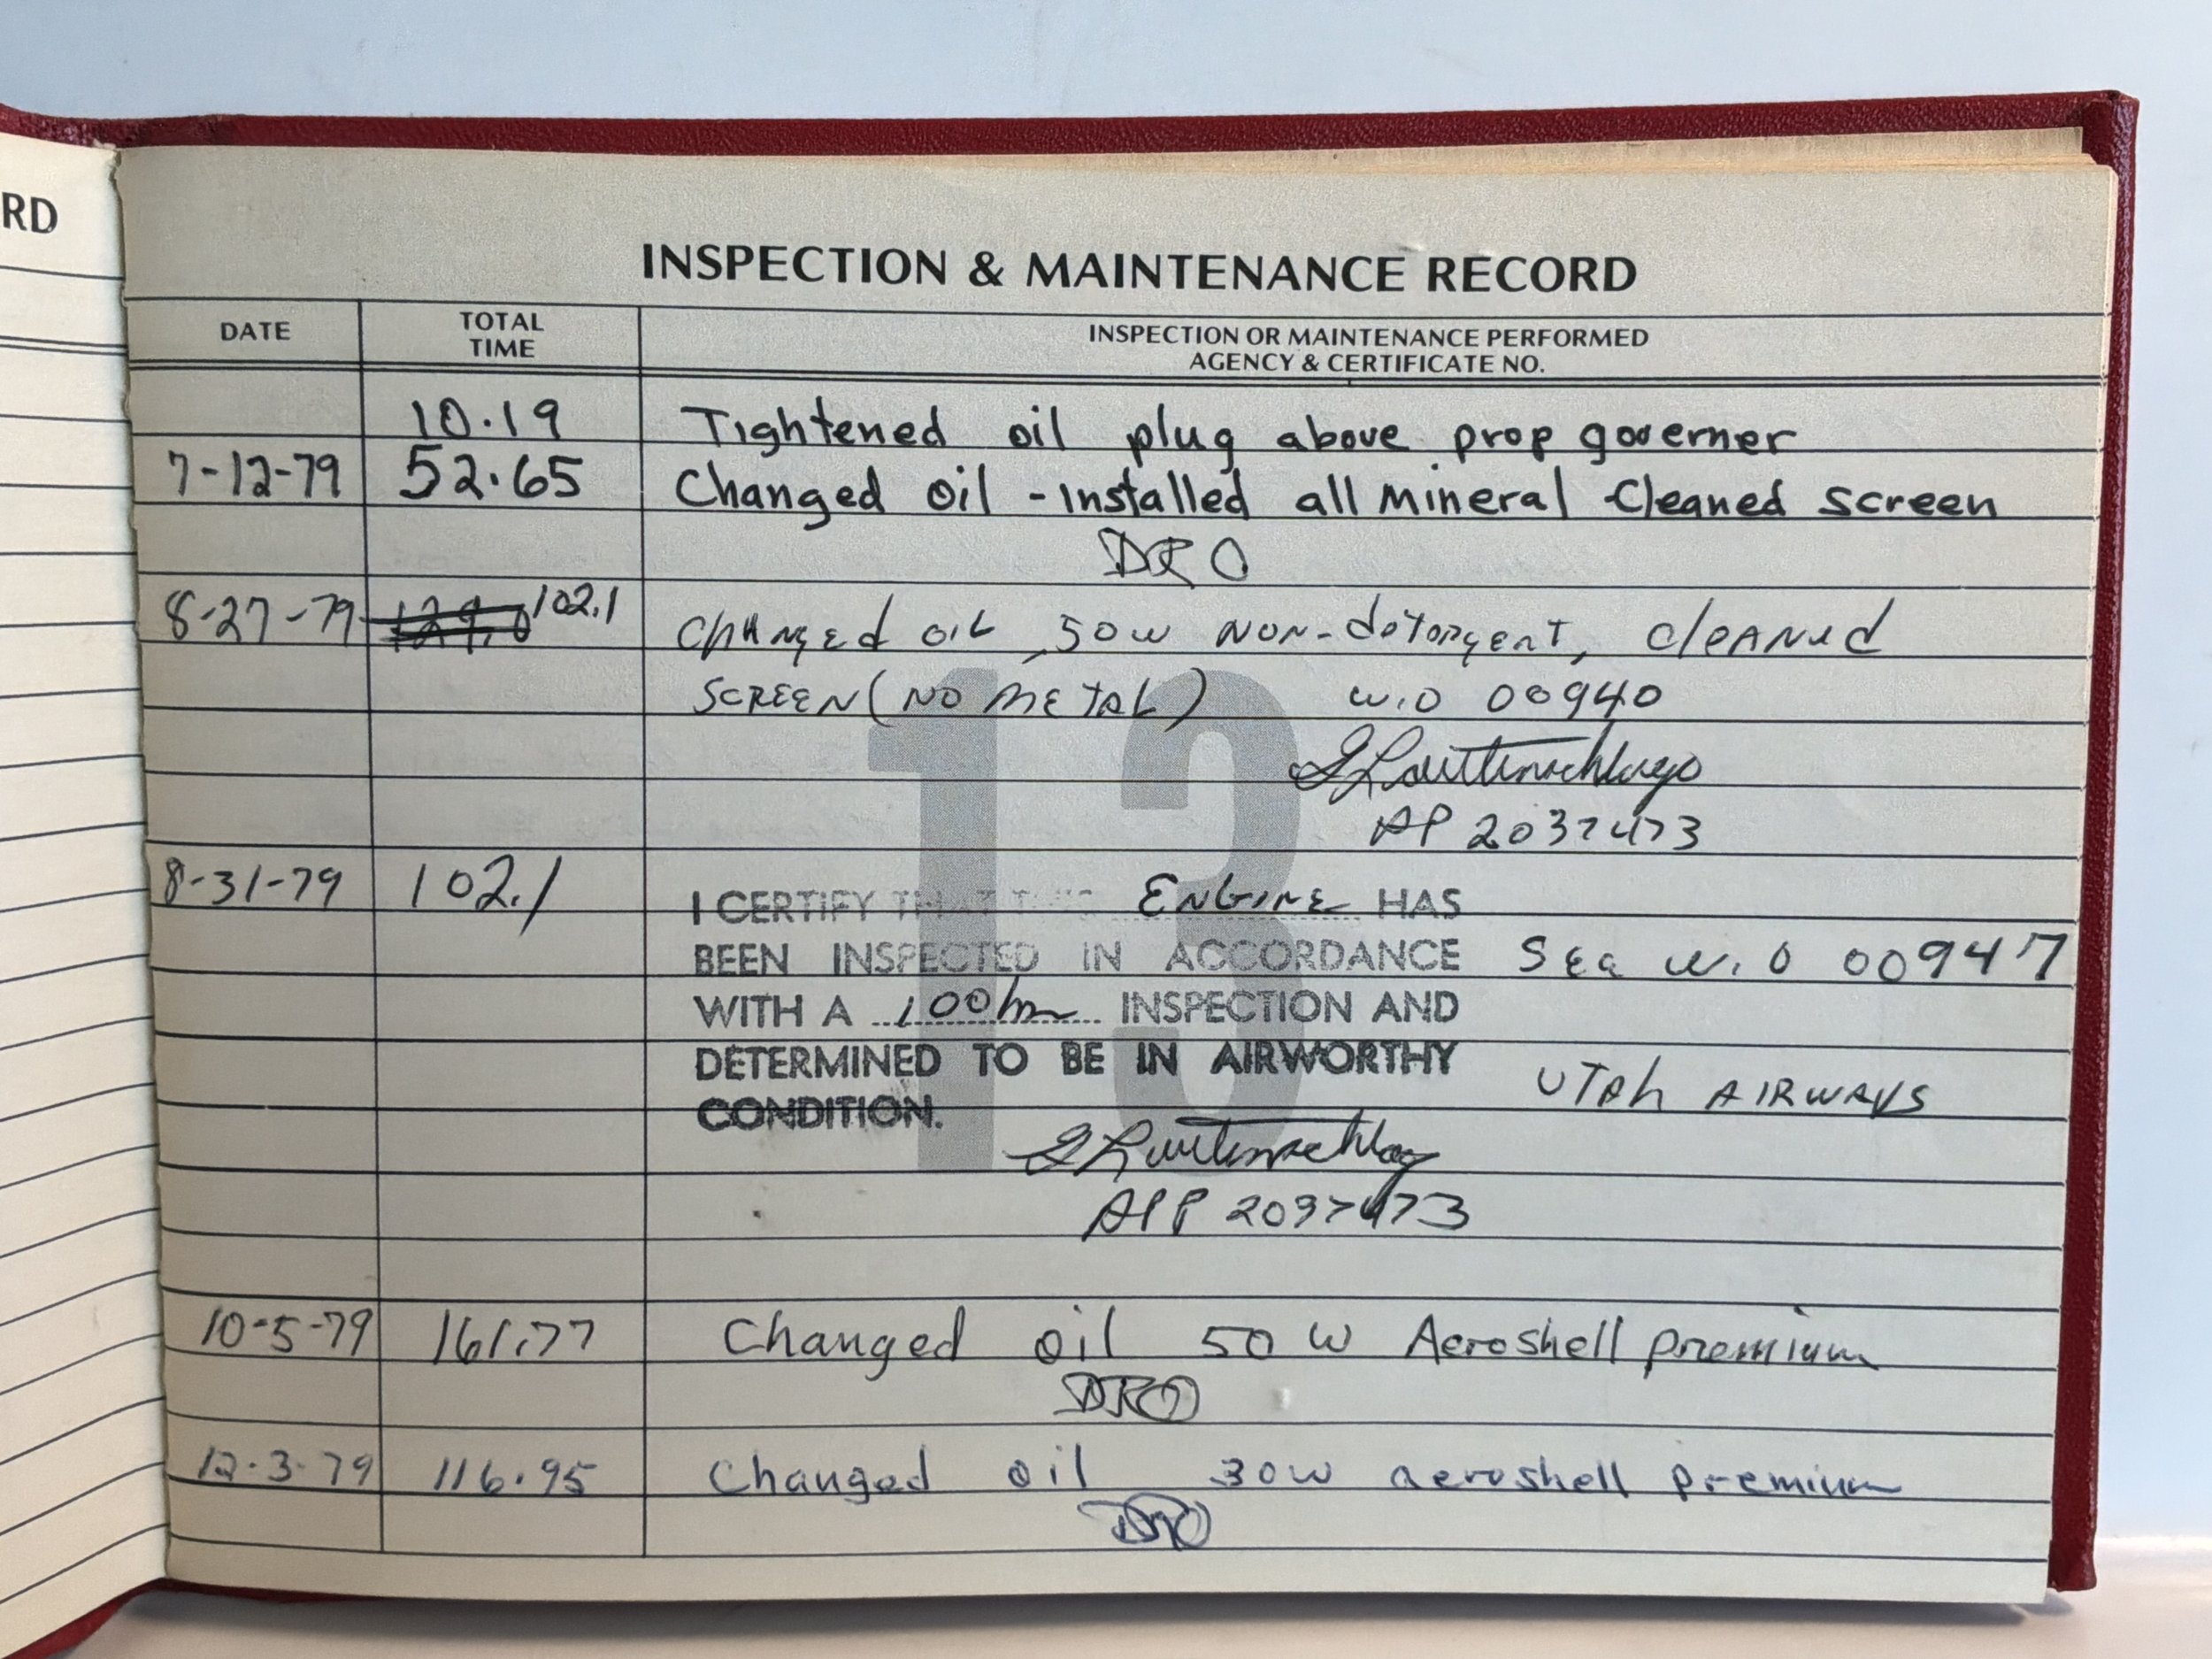 RD
INSPECTION & MAINTENANCE RECORD
DATE
TOTAL TIME
INSPECTION OR MAINTENANCE PERFORMED
AGENCY & CERTIFICATE NO.
10.19 Tightened oil plug above prop governer
7-12-79 52.65 Changed oil - Installed all mineral Cleaned screen
DRO
8-27-79 102.1 changed oil, 50w NON-detorgent, cleaned
SCREEN (NO METAL) W.O 00940
AP 2037473
8-31-79 102.1 I CERTIFY THAT THIS ENGINE HAS
BEEN INSPECTED IN ACCORDANCE See W.O 00947
WITH A 100hr INSPECTION AND
DETERMINED TO BE IN AIRWORTHY UTAh AIRWAYS
CONDITION.
2037473
13
10-5-79 161.77 Changed oil 50 W Aeroshell premium
DRO
12.3.79 116.95 Changed oil 30w aeroshell premium
DRO